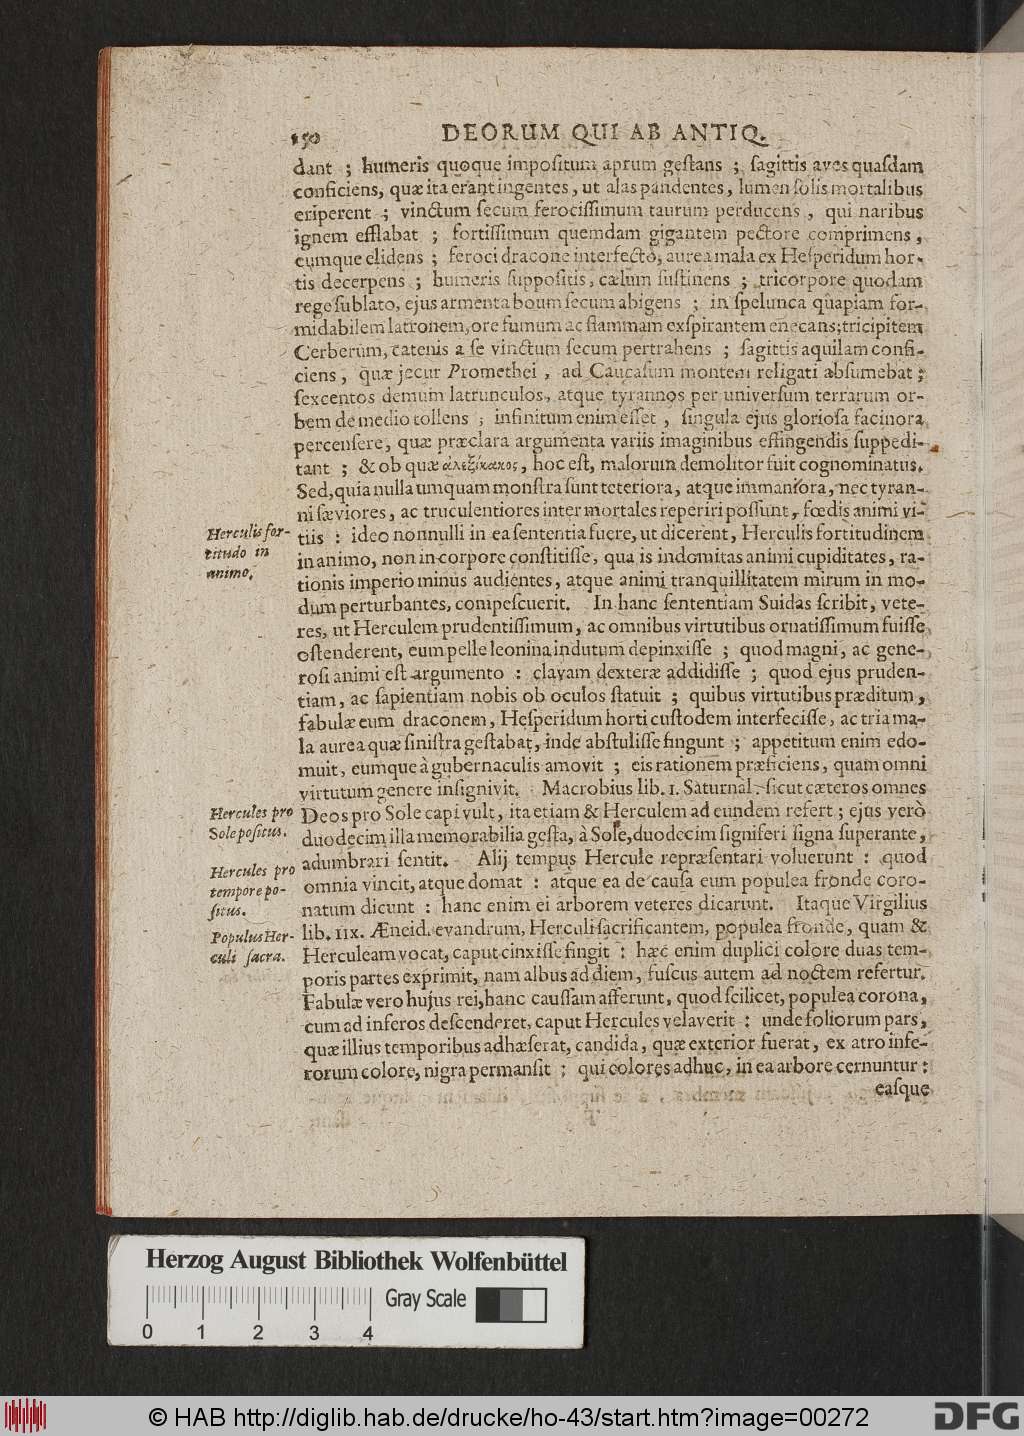 150
DEORUM QUI AB ANTIQ.
dant ; humeris quoque impositum aprum gestans ; sagittis aves quasdam
conficiens, quæ ita erant ingentes, ut alas pandentes, lumen solis mortalibus
eriperent ; vinctum secum ferocissimum taurum perducens, qui naribus
ignem efflabat ; fortissimum quemdam gigantem pectore comprimens,
eumque elidens ; feroci dracone interfecto, aurea mala ex Hesperidum hor-
tis decerpens ; humeris suppositis, cælum sustinens ; tricorpore quodam
rege sublato, ejus armenta boum secum abigens ; in spelunca quapiam for-
midabilem latronem, ore fumum ac flammam exspirantem enecans; tricipitem
Cerberum, catenis a se vinctum secum pertrahens ; sagittis aquilam confi-
ciens, quæ jecur Promethei, ad Caucasum montem religati absumebat ;
sexcentos demum latrunculos, atque tyrannos per universum terrarum or-
bem de medio tollens ; infinitum enim esset, singula ejus gloriosa facinora
percensere, quæ præclara argumenta variis imaginibus effingendis suppedi-
tant ; & ob quæ ἀλεξίκακος, hoc est, malorum demolitor fuit cognominatus.
Sed, quia nulla umquam monstra sunt teteriora, atque immaniora, nec tyran-
ni sæviores, ac truculentiores inter mortales reperiri possunt, fœdis animi vi-
tiis : ideo nonnulli in ea sententia fuere, ut dicerent, Herculis fortitudinem
in animo, non in corpore constitisse, qua is indomitas animi cupiditates, ra-
tionis imperio minus audientes, atque animi tranquillitatem mirum in mo-
dum perturbantes, compescuerit. In hanc sententiam Suidas scribit, vete-
res, ut Herculem prudentissimum, ac omnibus virtutibus ornatissimum fuisse
ostenderent, eum pelle leonina indutum depinxisse ; quod magni, ac gene-
rosi animi est argumento : clavam dexteræ addidisse ; quod ejus pruden-
tiam, ac sapientiam nobis ob oculos statuit ; quibus virtutibus præditum,
fabulæ eum draconem, Hesperidum horti custodem interfecisse, ac tria ma-
la aurea quæ sinistra gestabat, inde abstulisse fingunt ; appetitum enim edo-
muit, eumque à gubernaculis amovit ; eis rationem præficiens, quam omni
virtutum genere insignivit. Macrobius lib. 1. Saturnal. sicut cæteros omnes
Deos pro Sole capi vult, ita etiam & Herculem ad eundem refert ; ejus verò
duodecim illa memorabilia gesta, à Sole, duodecim signiferi signa superante,
adumbrari sentit. Alij tempus Hercule repræsentari voluerunt : quod
omnia vincit, atque domat : atque ea de causa eum populea fronde coro-
natum dicunt : hanc enim ei arborem veteres dicarunt. Itaque Virgilius
lib. iix. Æneid. evandrum, Herculi sacrificantem, populea fronde, quam &
Herculeam vocat, caput cinxisse fingit : hæc enim duplici colore duas tem-
poris partes exprimit, nam albus ad diem, fuscus autem ad noctem refertur.
Fabulæ vero hujus rei, hanc caussam afferunt, quod scilicet, populea corona,
cum ad inferos descenderet, caput Hercules velaverit : unde foliorum pars,
quæ illius temporibus adhæserat, candida, quæ exterior fuerat, ex atro infe-
rorum colore, nigra permansit ; qui colores adhuc, in ea arbore cernuntur :
easque
Herculis for-
titudo in
animo.
Hercules pro
Sole positus.
Hercules pro
tempore po-
situs.
Populus Her-
culi sacra.
Herzog August Bibliothek Wolfenbüttel
Gray Scale
0 1 2 3 4
© HAB http://diglib.hab.de/drucke/ho-43/start.htm?image=00272
DFG